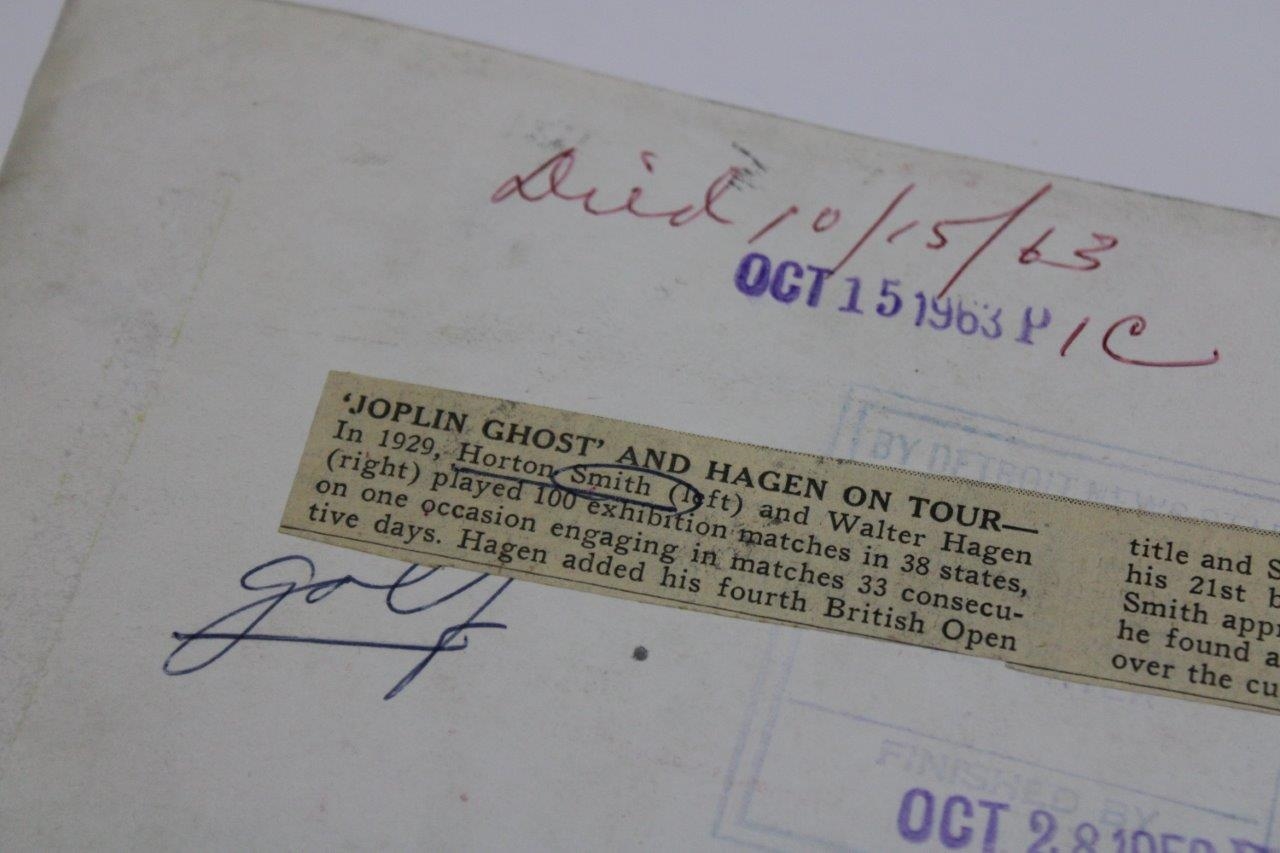 Died 10/15/63
OCT 15 1963 P 1C
'JOPLIN GHOST' AND HAGEN ON TOUR—
In 1929, Horton Smith (left) and Walter Hagen
(right) played 100 exhibition matches in 38 states,
on one occasion engaging in matches 33 consecu-
tive days. Hagen added his fourth British Open
title and S
his 21st b
Smith app
he found a
over the cu
golf
BY DETROIT NEWS
FINISHED BY
OCT 28